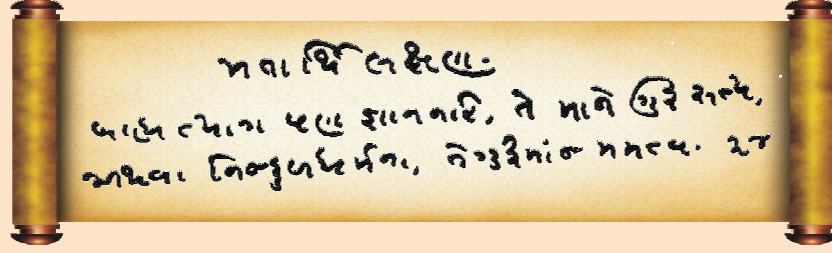 મતાર્થી લક્ષણ.
બાહ્ય ત્યાગ પણ જ્ઞાન નહિ, તે માને ગુરુ સત્ય,
અથવા નિજકુળધર્મના, તે ગુરુમાં જ મમત્વ. ૨૪